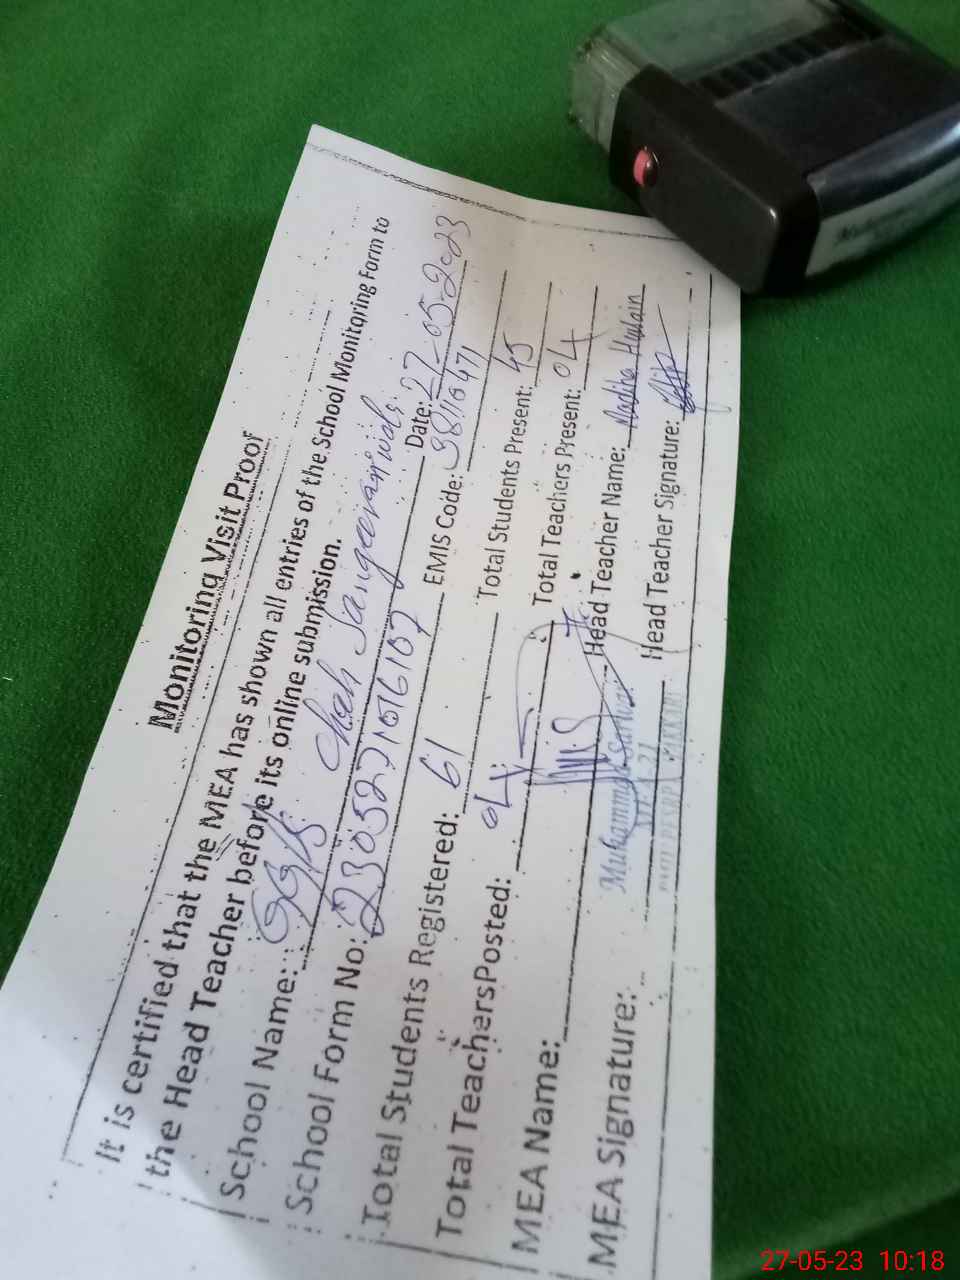 Monitoring Visit Proof
It is certified that the MEA has shown all entries of the School Monitoring Form to
the Head Teacher before its online submission.
School Name: GGPS Chah Date: 27-05-2023
School Form No: EMIS Code: 38110471
Total Students Registered: 61 Total Students Present: 45
Total TeachersPosted: 04 Total Teachers Present: 04
MEA Name: Head Teacher Name: Madiha
MEA Signature: Muhammad Sarwar Head Teacher Signature:
27-05-23 10:18